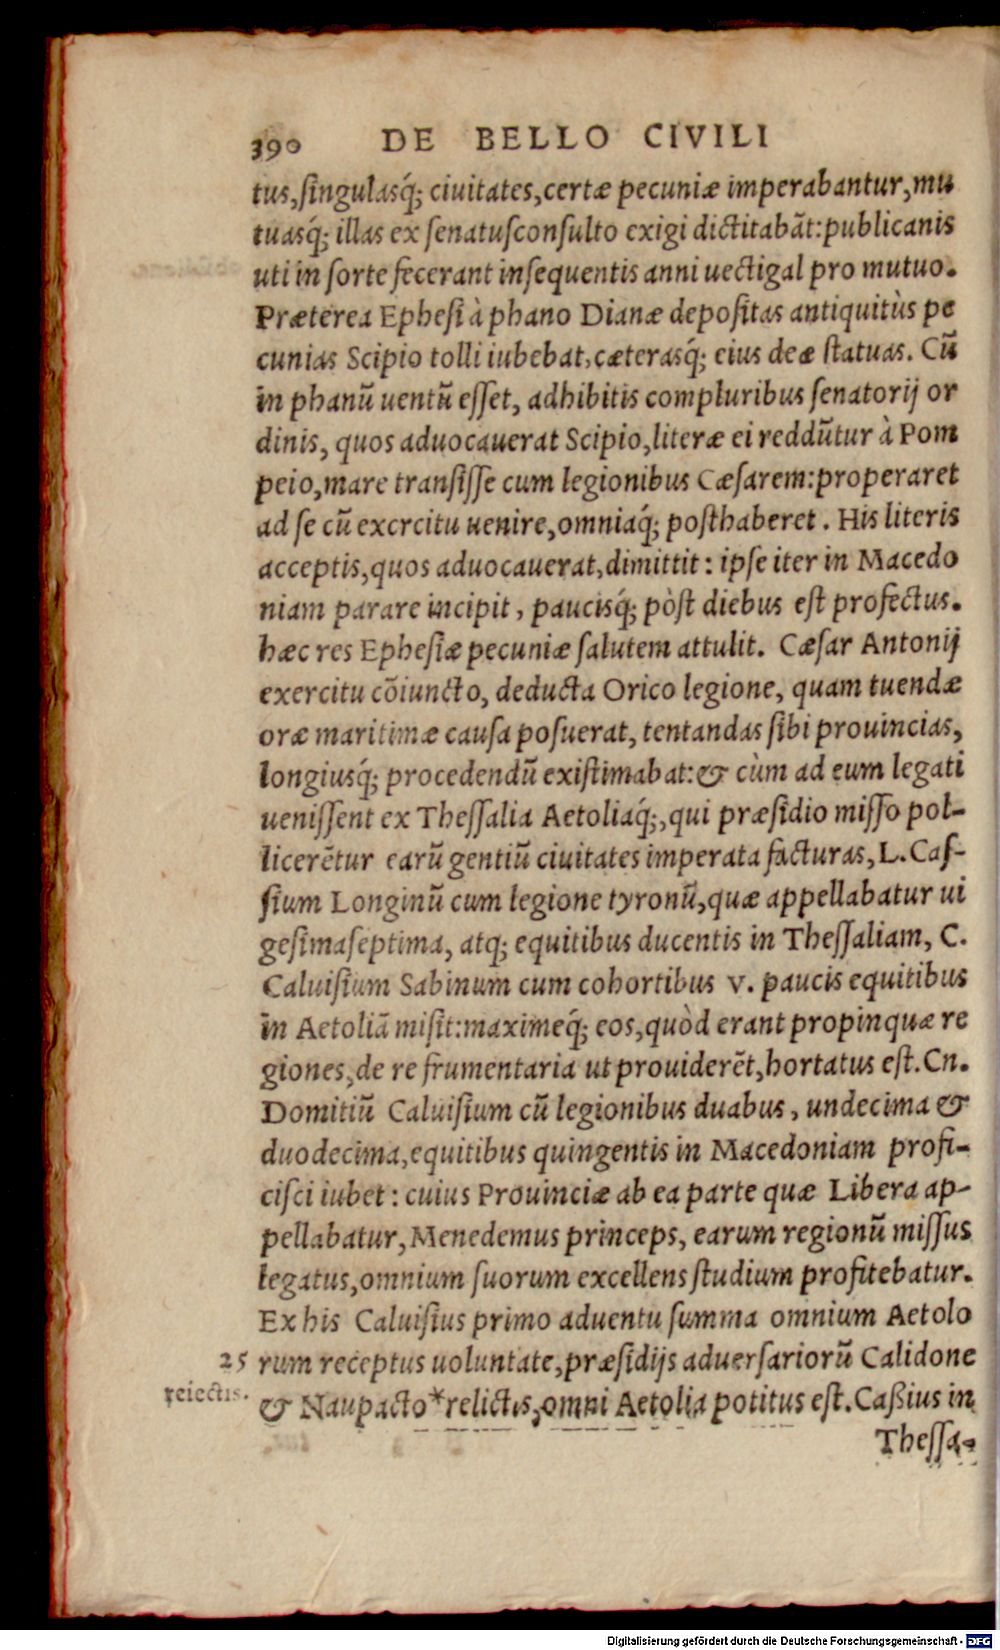 390 DE BELLO CIVILI
tus, singulasq́; ciuitates, certæ pecuniæ imperabantur, mu
tuasq́; illas ex senatusconsulto exigi dictitabãt: publicanis
uti in sorte fecerant insequentis anni uectigal pro mutuo.
Præterea Ephesi à phano Dianæ depositas antiquitùs pe
cunias Scipio tolli iubebat, cæterasq́; eius deæ statuas. Cũ
in phanũ uentũ esset, adhibitis compluribus senatorij or
dinis, quos aduocauerat Scipio, literæ ei reddũtur à Pom
peio, mare transisse cum legionibus Cæsarem: properaret
ad se cũ excrcitu uenire, omniaq́; posthaberet. His literis
acceptis, quos aduocauerat, dimittit: ipse iter in Macedo
niam parare incipit, paucisq́; pòst diebus est profectus.
hæc res Ephesiæ pecuniæ salutem attulit. Cæsar Antonij
exercitu cõiuncto, deducta Orico legione, quam tuendæ
oræ maritimæ causa posuerat, tentandas sibi prouincias,
longiusq́; procedendũ existimabat: & cùm ad eum legati
uenissent ex Thessalia Aetoliaq́;, qui præsidio misso pol-
licerẽtur earũ gentiũ ciuitates imperata facturas, L. Cas-
sium Longinũ cum legione tyronũ, quæ appellabatur ui
gesimaseptima, atq; equitibus ducentis in Thessaliam, C.
Caluisium Sabinum cum cohortibus v. paucis equitibus
in Aetoliã misit: maximeq́; eos, quòd erant propinquæ re
giones, de re frumentaria ut prouiderẽt, hortatus est. Cn.
Domitiũ Caluisium cũ legionibus duabus, undecima &
duodecima, equitibus quingentis in Macedoniam profi-
cisci iubet: cuius Prouinciæ ab ea parte quæ Libera ap-
pellabatur, Menedemus princeps, earum regionũ missus
legatus, omnium suorum excellens studium profitebatur.
Ex his Caluisius primo aduentu summa omnium Aetolo
25 rum receptus uoluntate, præsidijs aduersariorũ Calidone
reiectis. & Naupacto*relictis, omni Aetolia potitus est. Caßius in
Thessa-
Digitalisierung gefördert durch die Deutsche Forschungsgemeinschaft - DFG